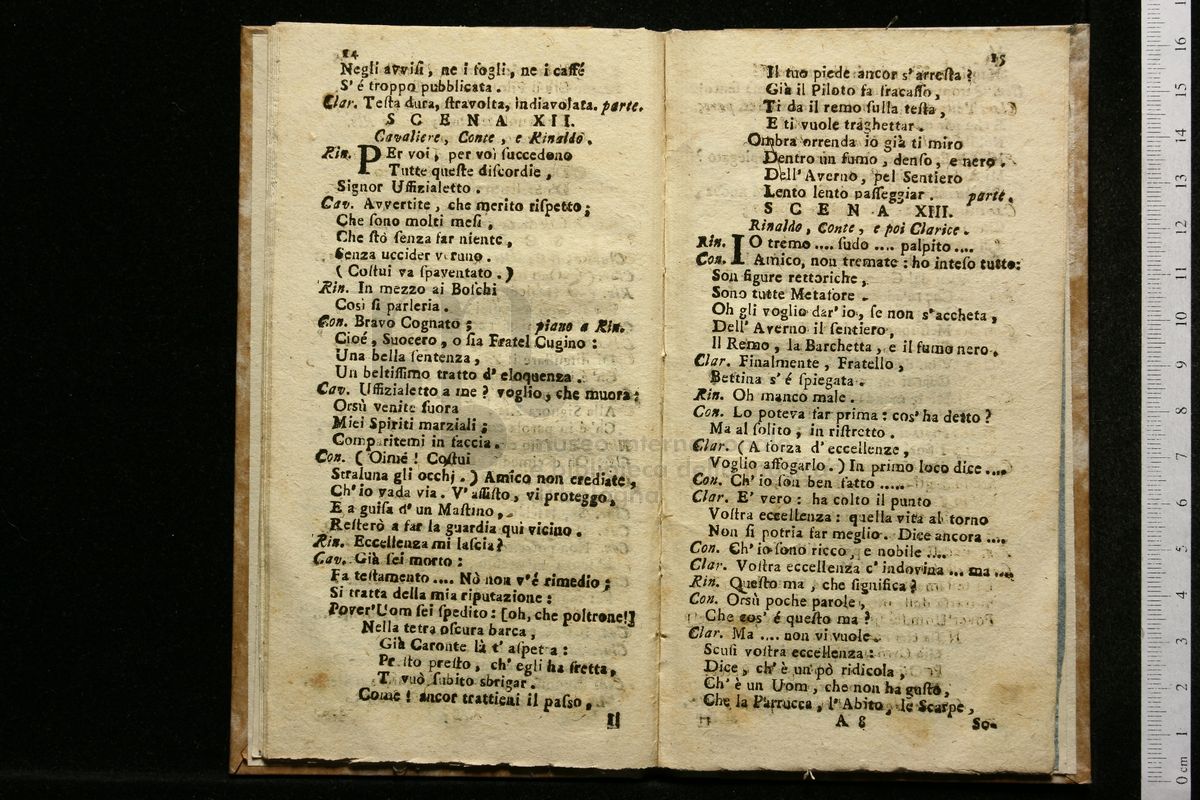 14
Negli avvisi, ne i fogli, ne i caffé
S' é troppo pubblicata.
Clar. Testa dura, stravolta, indiavolata. parte.
S C E N A XII.
Cavaliere, Conte, e Rinaldo.
Rin. PEr voi, per voi succedono
Tutte queste discordie,
Signor Uffizialetto.
Cav. Avvertite, che merito rispetto;
Che sono molti mesi,
Che stò senza far niente,
Senza uccider veruno.
( Costui va spaventato. )
Rin. In mezzo ai Boschi
Così si parleria.
Con. Bravo Cognato; piano a Rin.
Cioé, Suocero, o sia Fratel Cugino:
Una bella sentenza,
Un beltissimo tratto d' eloquenza.
Cav. Uffizialetto a me? voglio, che muora;
Orsù venite fuora
Miei Spiriti marziali;
Comparitemi in faccia.
Con. ( Oimé! Costui
Straluna gli occhj. ) Amico non crediate,
Ch' io vada via. V' assisto, vi proteggo,
E a guisa d' un Mastino,
Resterò a far la guardia qui vicino.
Rin. Eccellenza mi lascia?
Cav. Già sei morto:
Fa testamento .... Nò non v'é rimedio;
Si tratta della mia riputazione:
Pover'Uom sei spedito: [oh, che poltrone!]
Nella tetra oscura barca,
Già Caronte là t' aspetta:
Presto presto, ch' egli ha fretta,
Ti vuò subito sbrigar.
Come! ancor trattieni il passo,
Il
15
Il tuo piede ancor s' arresta?
Già il Piloto fa fracasso,
Ti da il remo sulla testa,
E ti vuole traghettar.
Ombra orrenda io già ti miro
Dentro un fumo, denso, e nero.
Dell' Averno, pel Sentiero
Lento lento passeggiar. parte.
S C E N A XIII.
Rinaldo, Conte, e poi Clarice.
Rin. IO tremo .... sudo .... palpito ....
Con. Amico, non tremate: ho inteso tutto:
Son figure rettoriche,
Sono tutte Metafore.
Oh gli voglio dar' io, se non s'accheta,
Dell' Averno il sentiero,
Il Remo, la Barchetta, e il fumo nero.
Clar. Finalmente, Fratello,
Bettina s' é spiegata.
Rin. Oh manco male.
Con. Lo poteva far prima: cos' ha detto?
Ma al solito, in ristretto.
Clar. ( A forza d' eccellenze,
Voglio affogarlo. ) In primo loco dice ....
Con. Ch' io son ben fatto .....
Clar. E' vero: ha colto il punto
Vostra eccellenza: quella vita al torno
Non si potria far meglio. Dice ancora ....
Con. Ch' io sono ricco, e nobile ....
Clar. Vostra eccellenza c' indovina ... ma ....
Rin. Questo ma, che significa?
Con. Orsù poche parole,
Che cos' é questo ma?
Clar. Ma .... non vi vuole.
Scusi vostra eccellenza:
Dice, ch' è un pò ridicola,
Ch' è un Uom, che non ha gusto,
Che la Parrucca, l'Abito, le Scarpe,
A 8 So-